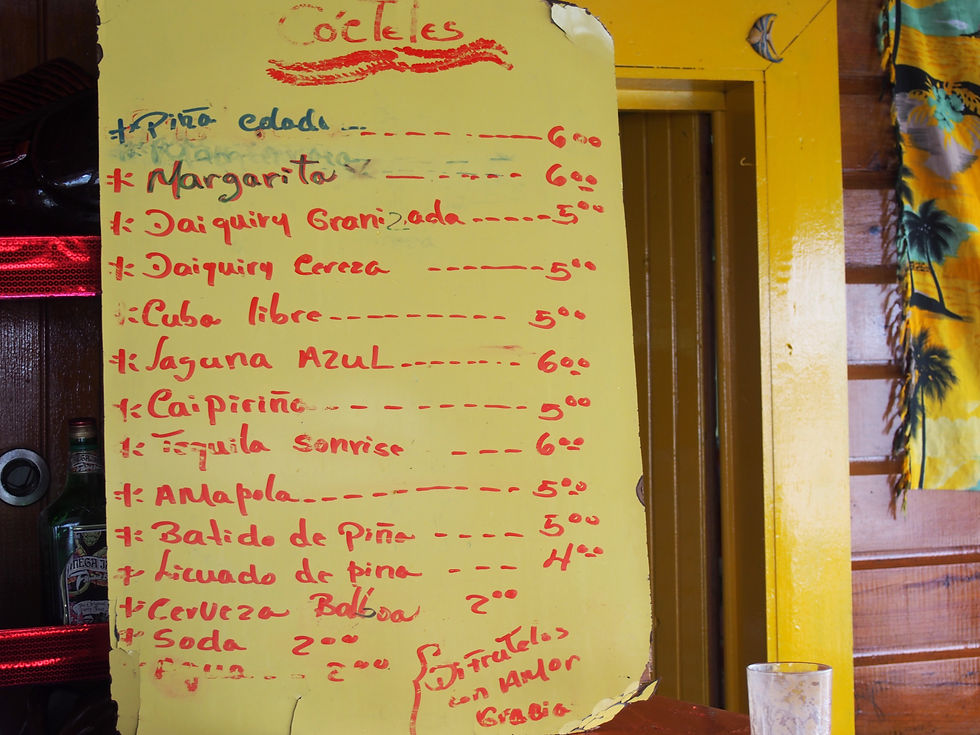 Cócteles
* Piña colada -- - - - - - - - - 6.00
* Margarita - - - - - 6.00
* Daiquiry Granizada ----- 5.00
* Daiquiry Cereza ------- 5.00
* Cuba libre --------- 5.00
* Laguna AZUL ------- 6.00
* Caipiriña - - - - - - - - 5.00
* Tequila Sonrise - - - - 6.00
* AMapola - - - - - - - - 5.00
* Batido de Piña - - - - 5.00
* Licuado de pina - - - 4.00
* Cerveza Balboa 2.00
* Soda 2.00
* Agua - - - 2.00
Difrutelos
con AMor
Gracia